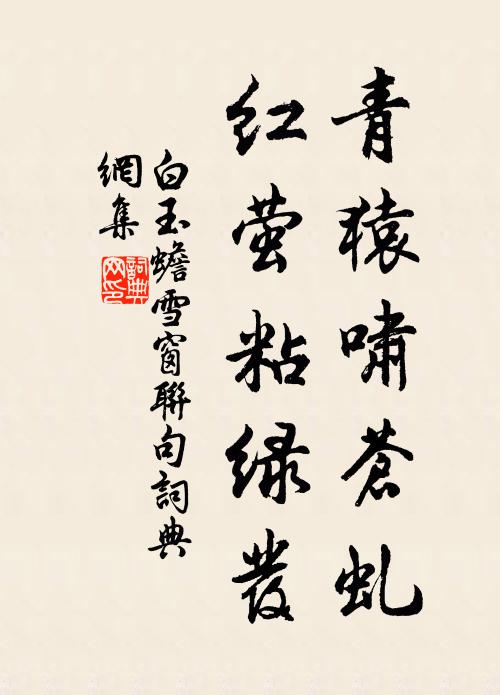 青猿啸苍虬
红萤粘绿发
白玉蟾雪窗联句词典
网集
词典网印